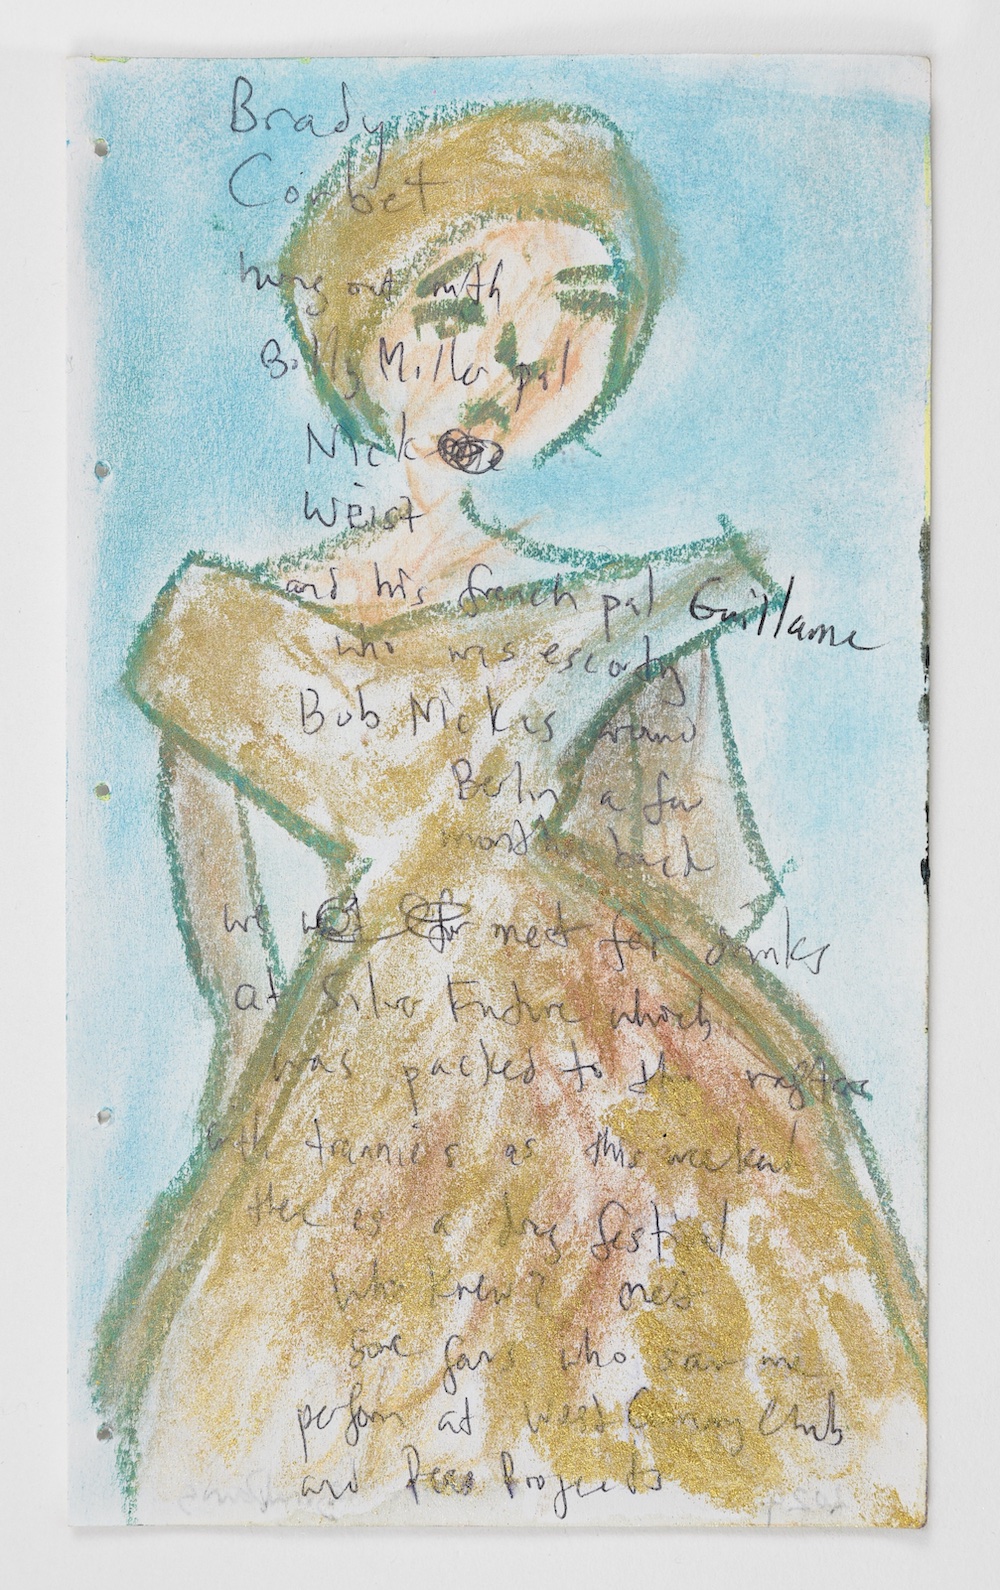 Brady
Corbet
hung out with
Billy Miller pal
Nick
Weist
and his french pal Guillame
who was escorty
Bob Nickas around
Berlin a few
months back
we meet for drinks
at Silver Future which
was packed to the rafters
with trannie's as this weekend
there is a drag festival
who knew? met
some fans who saw me
perform at West Germany Club
and Peres Projects